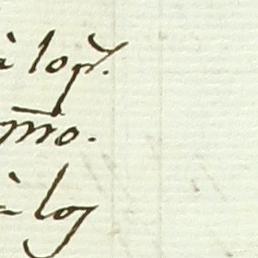 à log.
mo.
à log